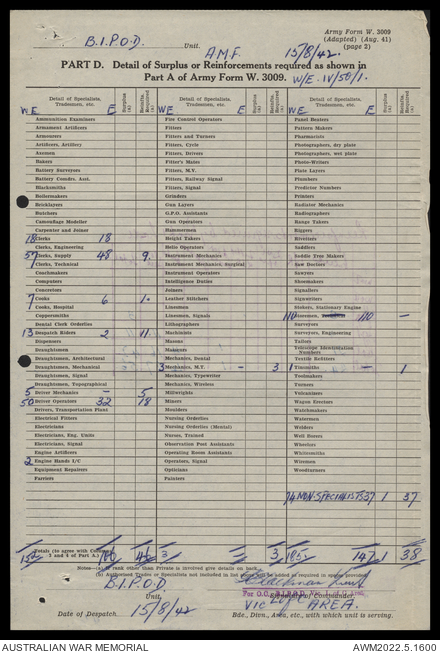 Army Form W. 3009
(Adapted) (Aug. 41)
(page 2)
B.I.P.O.D. Unit. A.M.F. 15/8/42.
PART D. Detail of Surplus or Reinforcements required as shown in
Part A of Army Form W. 3009. W/E. IV/50/1.
Detail of Specialists, Tradesmen, etc. Surplus (a) Reinfts. Required (a) Detail of Specialists, Tradesmen, etc. Surplus (a) Reinfts. Required (a) Detail of Specialists, Tradesmen, etc. Surplus (a) Reinfts. Required (a)
WE E WE E WE E
Ammunition Examiners Fire Control Operators Panel Beaters
Armament Artificers Fitters Pattern Makers
Armourers Fitters and Turners Pharmacists
Artificers, Artillery Fitters, Cycle Photographers, dry plate
Axemen Fitters, Drivers Photographers, wet plate
Bakers Fitter's Mates Photo-Writers
Battery Surveyors Fitters, M.V. Plate Layers
Battery Comdrs. Asst. Fitters, Railway Signal Plumbers
Blacksmiths Fitters, Signal Predictor Numbers
Boilermakers Grinders Printers
Bricklayers Gun Layers Radiator Mechanics
Butchers G.P.O. Assistants Radiographers
Camouflage Modeller Gun Operators Range Takers
Carpenter and Joiner Hammermen Riggers
18 Clerks 18 - Height Takers Riveters
Clerks, Engineering Helio Operators Saddlers
57 Clerks, Supply 48 9. Instrument Mechanics Saddle Tree Makers
Clerks, Technical Instrument Mechanics, Surgical Saw Doctors
Coachmakers Instrument Operators Sawyers
Computers Intelligence Duties Shoemakers
Concretors Joiners Signallers
7 Cooks 6 1. Leather Stitchers Signwriters
Cooks, Hospital Linesmen Stokers, Stationary Engine
Coppersmiths Linesmen, Signals 110 Storemen, 110 -
Dental Clerk Orderlies Lithographers Surveyors
13 Despatch Riders 2 11. Machinists Surveyors, Engineering
Dispensers Masons Tailors
Draughtsmen Masseurs Telescope Identification Numbers
Draughtsmen, Architectural Mechanics, Dental Textile Refitters
Draughtsmen, Mechanical 3 Mechanics, M.T. - 3 1 Tinsmiths - 1
Draughtsmen, Signal Mechanics, Typewriter Toolmakers
Draughtsmen, Topographical Mechanics, Wireless Turners
5 Driver Mechanics - 5 Millwrights Vulcanizers
50 Driver Operators 32 18 Miners Wagon Erectors
Drivers, Transportation Plant Moulders Watchmakers
Electrical Fitters Nursing Orderlies Watermen
Electricians Nursing Orderlies (Mental) Welders
Electricians, Eng. Units Nurses, Trained Well Borers
Electricians, Signal Observation Post Assistants Wheelers
Engine Artificers Operating Room Assistants Whitesmiths
2 Engine Hands I/C Operators, Signal Wiremen
Equipment Repairers Opticians Woodturners
Farriers Painters
74 NON-SPECIALISTS 37 1 37
Totals (to agree with Columns 2 and 4 of Part A.) 3 3 185 147 1 38
Notes—(a) If rank other than Private is involved give details on back.
(b) Authorised Trades or Specialists not included in list above will be added as required in spaces provided.
B.I.P.O.D. Unit,
Signature of Commander
VIC L of C AREA.
Date of Despatch. 15/8/42 Bde., Divn., Area, etc., with which unit is serving.
AUSTRALIAN WAR MEMORIAL AWM2022.5.1600